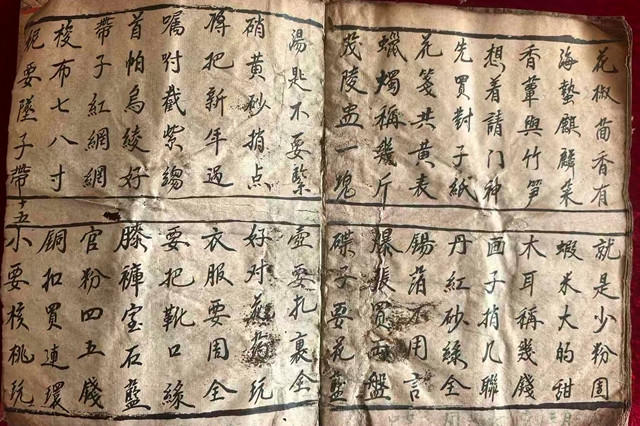 花椒茴香有
就是少粉団
海蜇麒麟菜
蝦米大的甜
香蕈與竹笋
木耳稱幾錢
想着請门神
画子捎几聯
先買對子紙
丹紅砂綠全
花箋共黄表
錫箔不用言
蠟燭稱幾斤
爆張買両盤
茂陵盅一塊
碟子要花籃
湯匙不要緊
壺要扎裹全
硝黄砂捎点
好对花 玩
再把新年過
衣服要周全
嘱咐截紫縐
要把靴口緣
首帕烏綾好
膝褲宝石藍
帶子紅網網
官粉四五錢
梭布七八寸
铜扣買連環
要墜子帶
十五
小要核桃玩